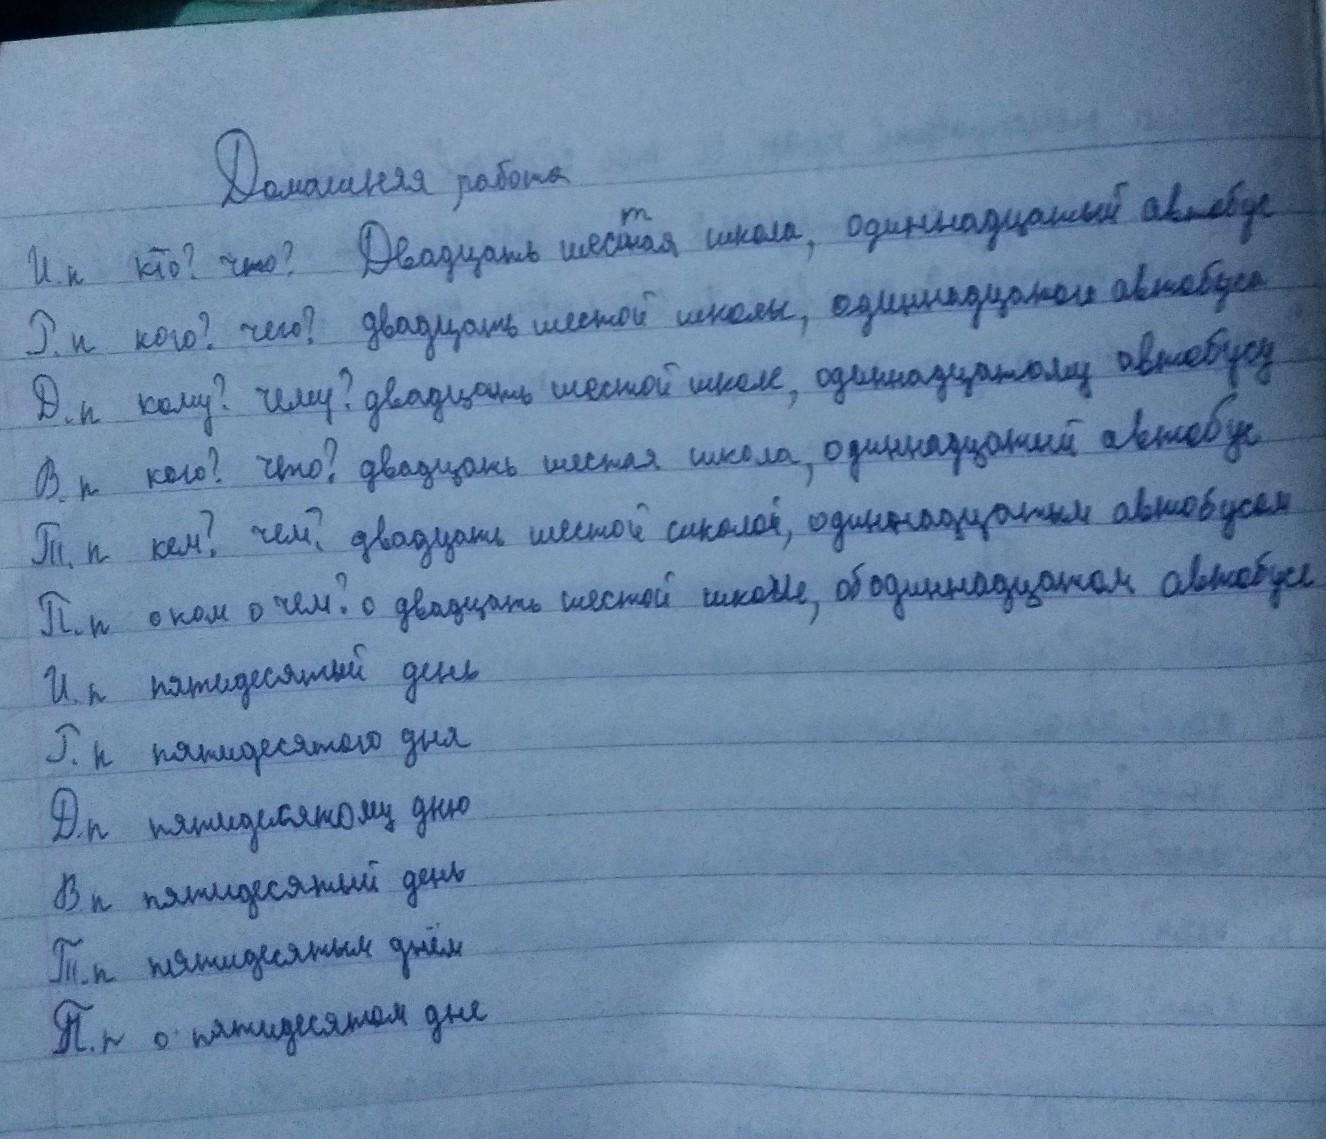 Домашняя работа
И.п кто? что? Двадцать шестая школа, одиннадцатый автобус
Г.п кого? чего? двадцать шестой школы, одиннадцатого автобуса
Д.п кому? чему? двадцать шестой школе, одиннадцатому автобусу
В.п кого? что? двадцать шестая школа, одиннадцатый автобус
Т.п кем? чем? двадцать шестой школой, одиннадцатым автобусом
П.п о ком о чем? о двадцать шестой школе, об одиннадцатом автобусе
И.п пятидесятый день
Г.п пятидесятого дня
Д.п пятидесятому дню
В.п пятидесятый день
Т.п пятидесятым днём
П.п о пятидесятом дне